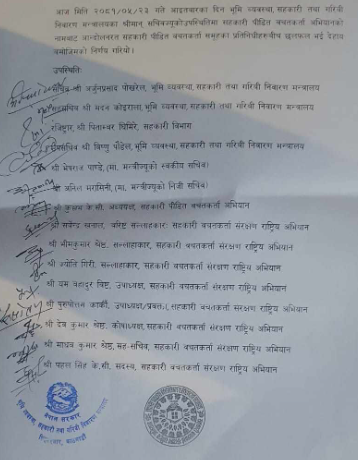 आज मिति २०८१/०५/२३ गते आइतबारका दिन भूमि व्यवस्था, सहकारी तथा गरिवी
निवारण मन्त्रालयका श्रीमान् सचिवज्यूको उपस्थितिमा सहकारी पीडित बचतकर्ता अभियानको
नामबाट आन्दोलनरत सहकारी पीडित बचतकर्ता समूहका प्रतिनिधीहरुबीच छलफल भई देहाय
बमोजिमको निर्णय गरियो।
उपस्थितिः
सचिव श्री अर्जुनप्रसाद पोखरेल, भूमि व्यवस्था, सहकारी तथा गरिवी निवारण मन्त्रालय
सहसचिव श्री मदन कोइराला, भूमि व्यवस्था, सहकारी तथा गरिवी निवारण मन्त्रालय
रजिष्ट्रार, श्री पिताम्बर घिमिरे, सहकारी विभाग
उपसचिव श्री विष्णु पौडेल, भूमि व्यवस्था, सहकारी तथा गरिवी निवारण मन्त्रालय
श्री भेषराज पाण्डे, (मा. मन्त्रीज्यूको स्वकीय सचिव)
अनिल मरासिनी, (मा. मन्त्रीज्यूको निजी सचिव)
श्री कुशम के.सी. अध्यक्ष, सहकारी पीडित बचतकर्ता संरक्षण राष्ट्रिय अभियान
श्री खनाल, वरिष्ठ सल्लाहकार, सहकारी बचतकर्ता संरक्षण राष्ट्रिय अभियान
श्री भीमकुमार श्रेष्ठ, सल्लाहाकार, सहकारी बचतकर्ता संरक्षण राष्ट्रिय अभियान
श्री ज्योति गिरी, सल्लाहाकार, सहकारी बचतकर्ता संरक्षण राष्ट्रिय अभियान
श्री यम बहादुर बिष्ट, उपाध्यक्ष, सहकारी बचतकर्ता संरक्षण राष्ट्रिय अभियान
श्री पुरुषोत्तम कार्की, उपाध्यक्ष/प्रवक्ता, सहकारी बचतकर्ता संरक्षण राष्ट्रिय अभियान
श्री देव कुमार श्रेष्ठ, कोषाध्यक्ष, सहकारी बचतकर्ता संरक्षण राष्ट्रिय अभियान
श्री माधव कुमार श्रेष्ठ, सह-सचिव, सहकारी बचतकर्ता संरक्षण राष्ट्रिय अभियान
श्री पहल सिंह के.सी. सदस्य, सहकारी बचतकर्ता संरक्षण राष्ट्रिय अभियान
नेपाल सरकार
भूमि व्यवस्था, सहकारी तथा गरिवी निवारण मन्त्रालय
सिंहदरबार, काठमाडौं